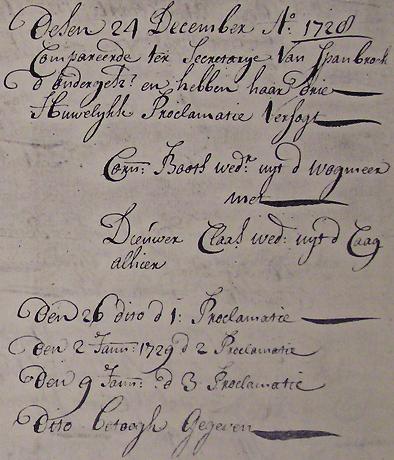 Desen 24 December Ao. 1728
Compareerde ter Secretarye Van Spanbroek
d ondergetr: en hebben haar drie
Huwelykse Proclamatie Versogt
Corn: Booth wedr. uyt d wogmeer
met
Dieuwer Claas wed: uyt d Caag
alhier
Den 26 dito d 1: Proclamatie
Den 2 Jann: 1729 d 2 Proclamatie
Den 9 Jann: d 3 Proclamatie
Dito betoogh Gegeven